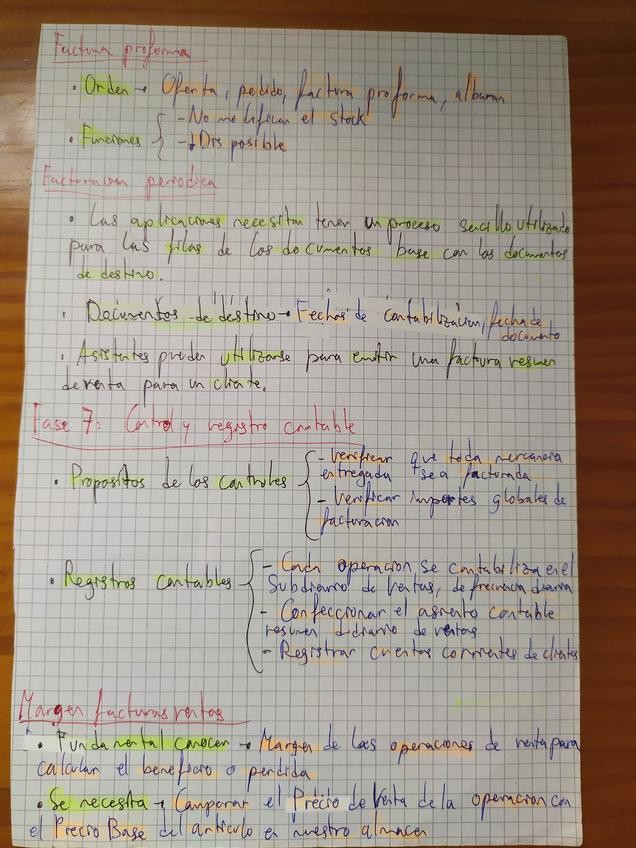 Factura proforma
• Orden → Oferta, pedido, factura proforma, albaran
• Funciones { - No modifican el stock
- ↓ Disposible
Facturacion periodica
• Las aplicaciones necesitan tener un proceso sencillo utilizado
para las filas de los documentos base con los documentos
de destino.
• Documentos de destino → Fechas de contabilizacion, fecha de
documento
• Asistentes pueden utilizarse para emitir una factura resumen
de venta para un cliente.
Fase 7: Control y registro contable
• Propositos de los controles { - Verificar que toda mercancia
entregada sea facturada
- Verificar importes globales de
facturacion
• Registros contables { - Cada operacion se contabiliza en el
Subdiario de ventas, de frecuencia diaria
- Confeccionar el asiento contable
resumen diario de ventas
- Registrar cuentas corrientes de clientes
Margen facturas ventas
• Fundamental conocer → Margen de las operaciones de venta para
calcular el beneficio o perdida
• Se necesita → Comparar el Precio de Venta de la operacion con
el Precio Base del articulo en nuestro almacen